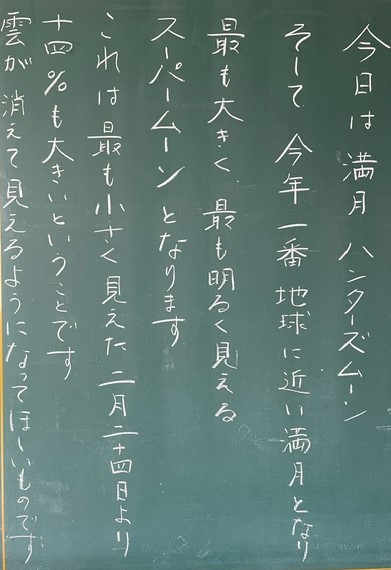 今日は満月 ハンターズムーン
そして 今年一番地球に近い満月となり
最も大きく、最も明るく見える
スーパームーンとなります
これは最も小さく見えた二月二十四日より
十四%も大きいということです
雲が消えて見えるようになってほしいものです